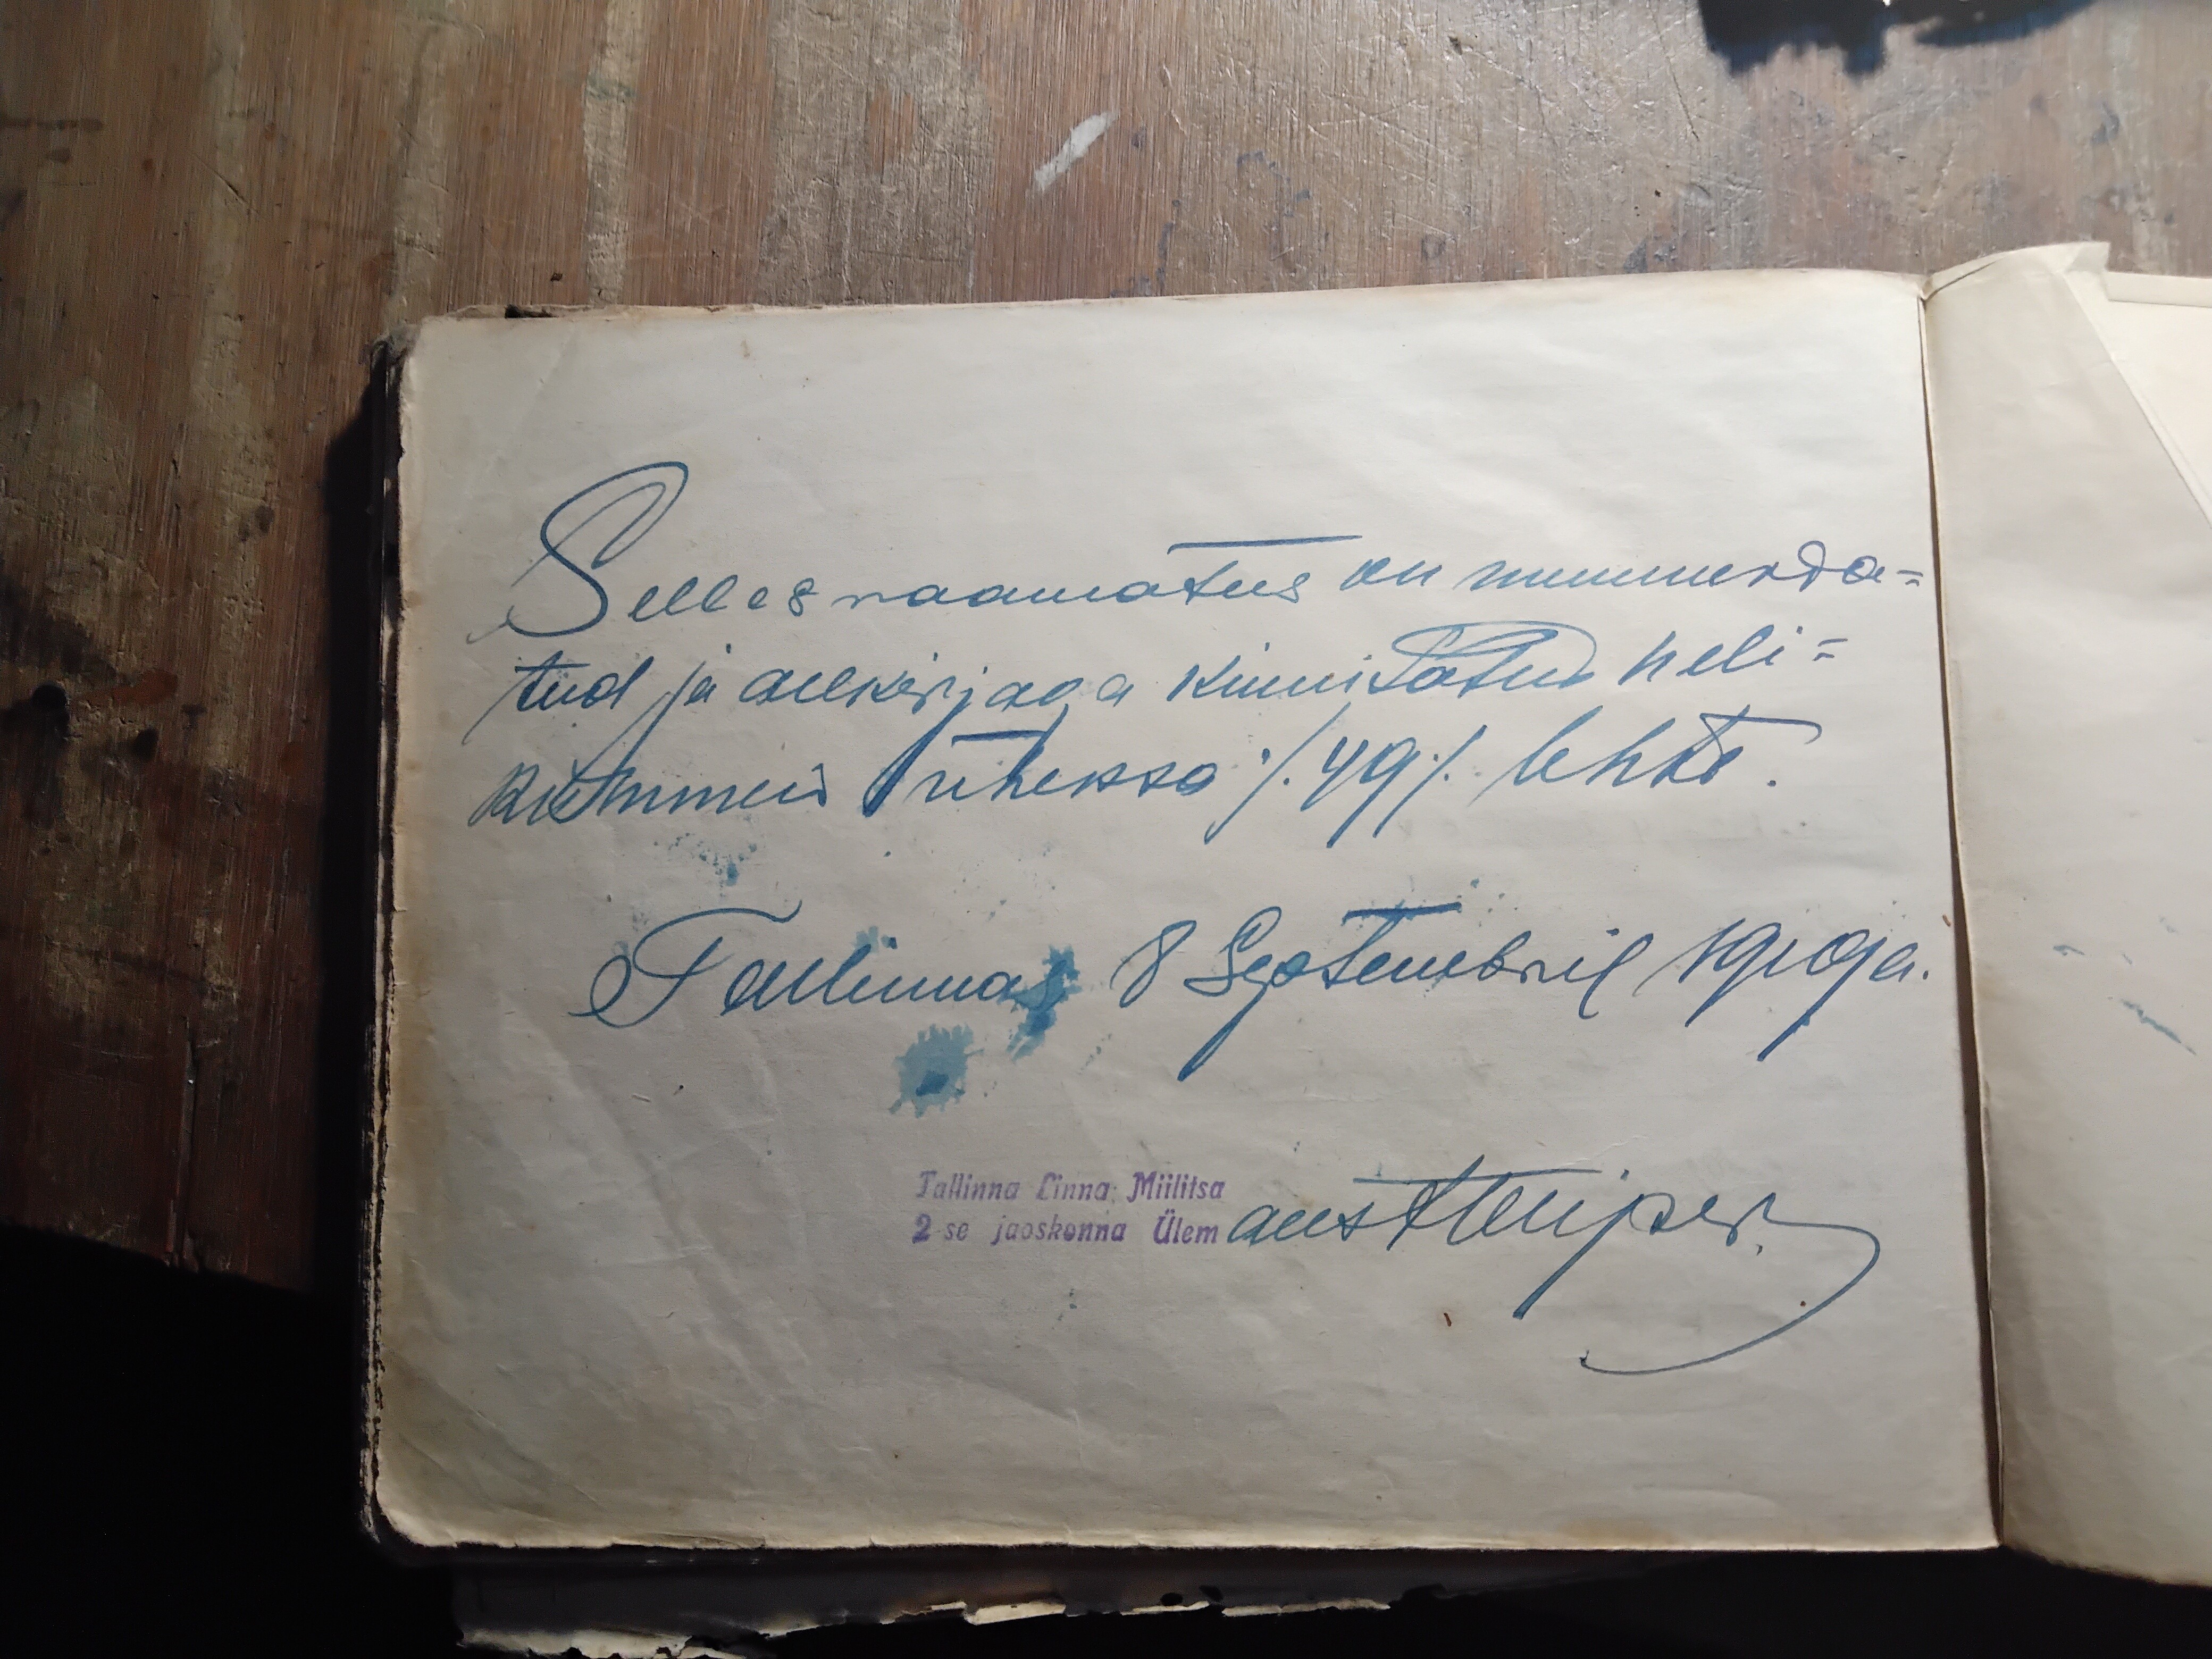 Selles raamatus on nummerda=
tud ja allkirjaga kinnitatud neli=
kümmend üheksa ·/. 49 ·/. lehte.
Tallinnas 8 Septembril
Tallinna Linna Miilitsa
2-se jaoskonna Ülem